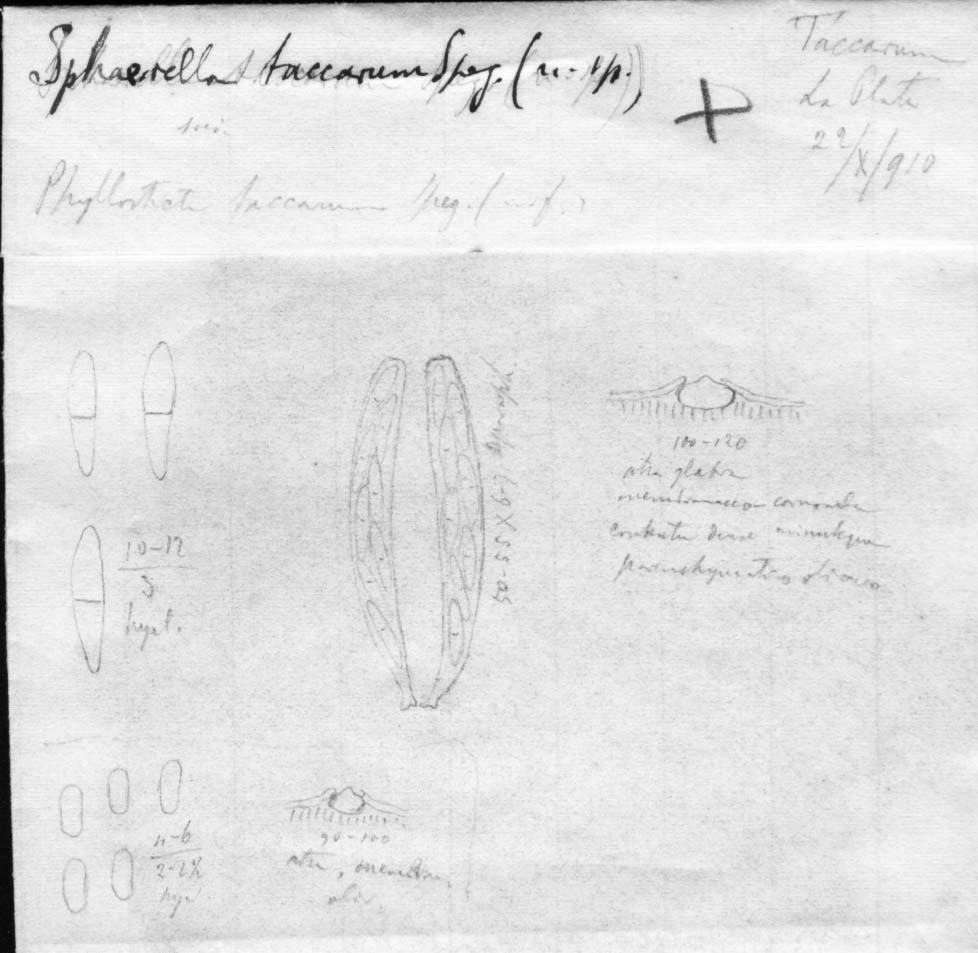 Sphaerella taccarum Speg. (n. sp.)
Taccarum
La Plata
22/X/910
Phyllosticta taccarum Speg. (n. f.)
10-12
3
hyal.
50-55 X 9-
100-120
atra glabra
membranacea
contextu dense minuteque
parenchymatico olivaceo
4-6
2-2½
hyal
90-100
atra, membran.
oliv.